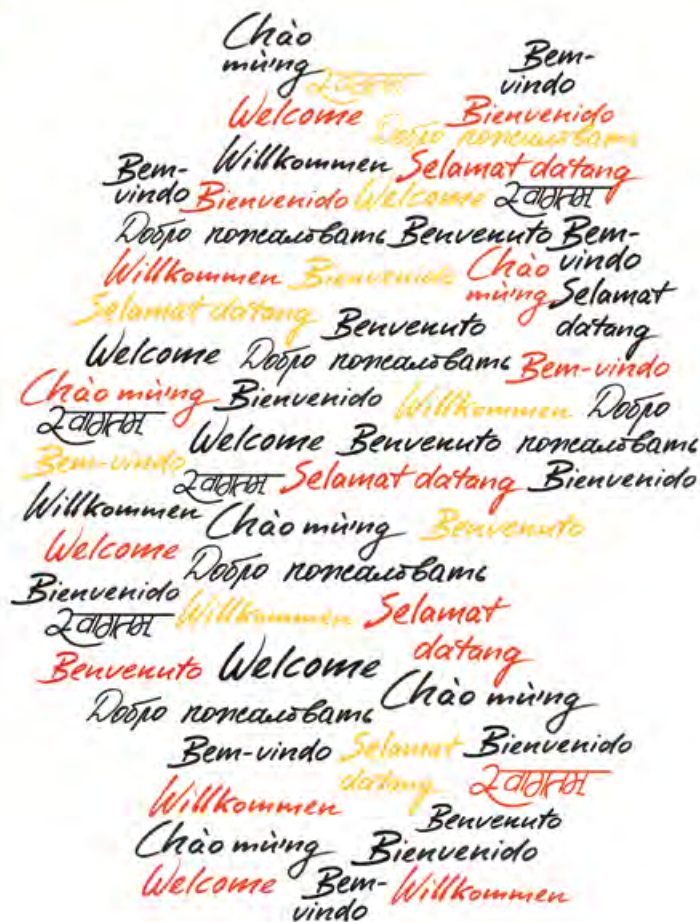 Chào
mừng
स्वागतम
Bem-
vindo
Welcome
Bienvenido
Добро пожаловать
Bem-
vindo
Willkommen
Selamat datang
Bienvenido
Welcome
स्वागतम
Добро пожаловать
Benvenuto
Bem-
vindo
Willkommen
Bienvenido
Chào
mừng
Selamat
datang
Selamat datang
Benvenuto
Welcome
Добро пожаловать
Bem-vindo
Chào mừng
Bienvenido
Willkommen
Добро
пожаловать
स्वागतम
Welcome
Benvenuto
Bem-vindo
स्वागतम
Selamat datang
Bienvenido
Willkommen
Chào mừng
Benvenuto
Welcome
Добро пожаловать
Bienvenido
स्वागतम
Willkommen
Selamat
datang
Benvenuto
Welcome
Chào mừng
Добро пожаловать
Bem-vindo
Selamat
datang
Bienvenido
स्वागतम
Willkommen
Benvenuto
Chào mừng
Bienvenido
Welcome
Bem-
vindo
Willkommen